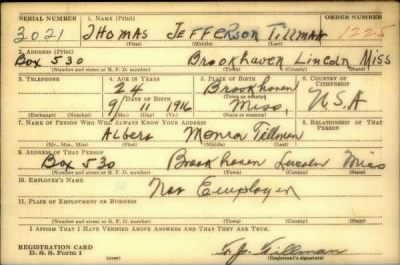 SERIAL NUMBER 1. NAME (Print) ORDER NUMBER
3021 THOMAS JEFFERSON TILLMAN 1225
(First) (Middle) (Last)
2. ADDRESS (Print)
Box 530 Brookhaven Lincoln Miss
(Number and street or R. F. D. number) (Town) (County) (State)
3. TELEPHONE 4. AGE IN YEARS 5. PLACE OF BIRTH 6. COUNTRY OF CITIZENSHIP
24 Brookhaven
DATE OF BIRTH (Town or county)
9 11 1916 Miss. U.S.A
(Exchange) (Number) (Mo.) (Day) (Yr.) (State or country)
7. NAME OF PERSON WHO WILL ALWAYS KNOW YOUR ADDRESS 8. RELATIONSHIP OF THAT PERSON
Albert Monroe Tillman
(Mr., Mrs., Miss) (First) (Middle) (Last)
9. ADDRESS OF THAT PERSON
Box 530 Brookhaven Lincoln Miss
(Number and street or R. F. D. number) (Town) (County) (State)
10. EMPLOYER'S NAME
Not Employed
11. PLACE OF EMPLOYMENT OR BUSINESS
(Number and street or R. F. D. number) (Town) (County) (State)
I AFFIRM THAT I HAVE VERIFIED ABOVE ANSWERS AND THAT THEY ARE TRUE.
REGISTRATION CARD
D. S. S. Form 1 T. J. Tillman
(Registrant's signature)